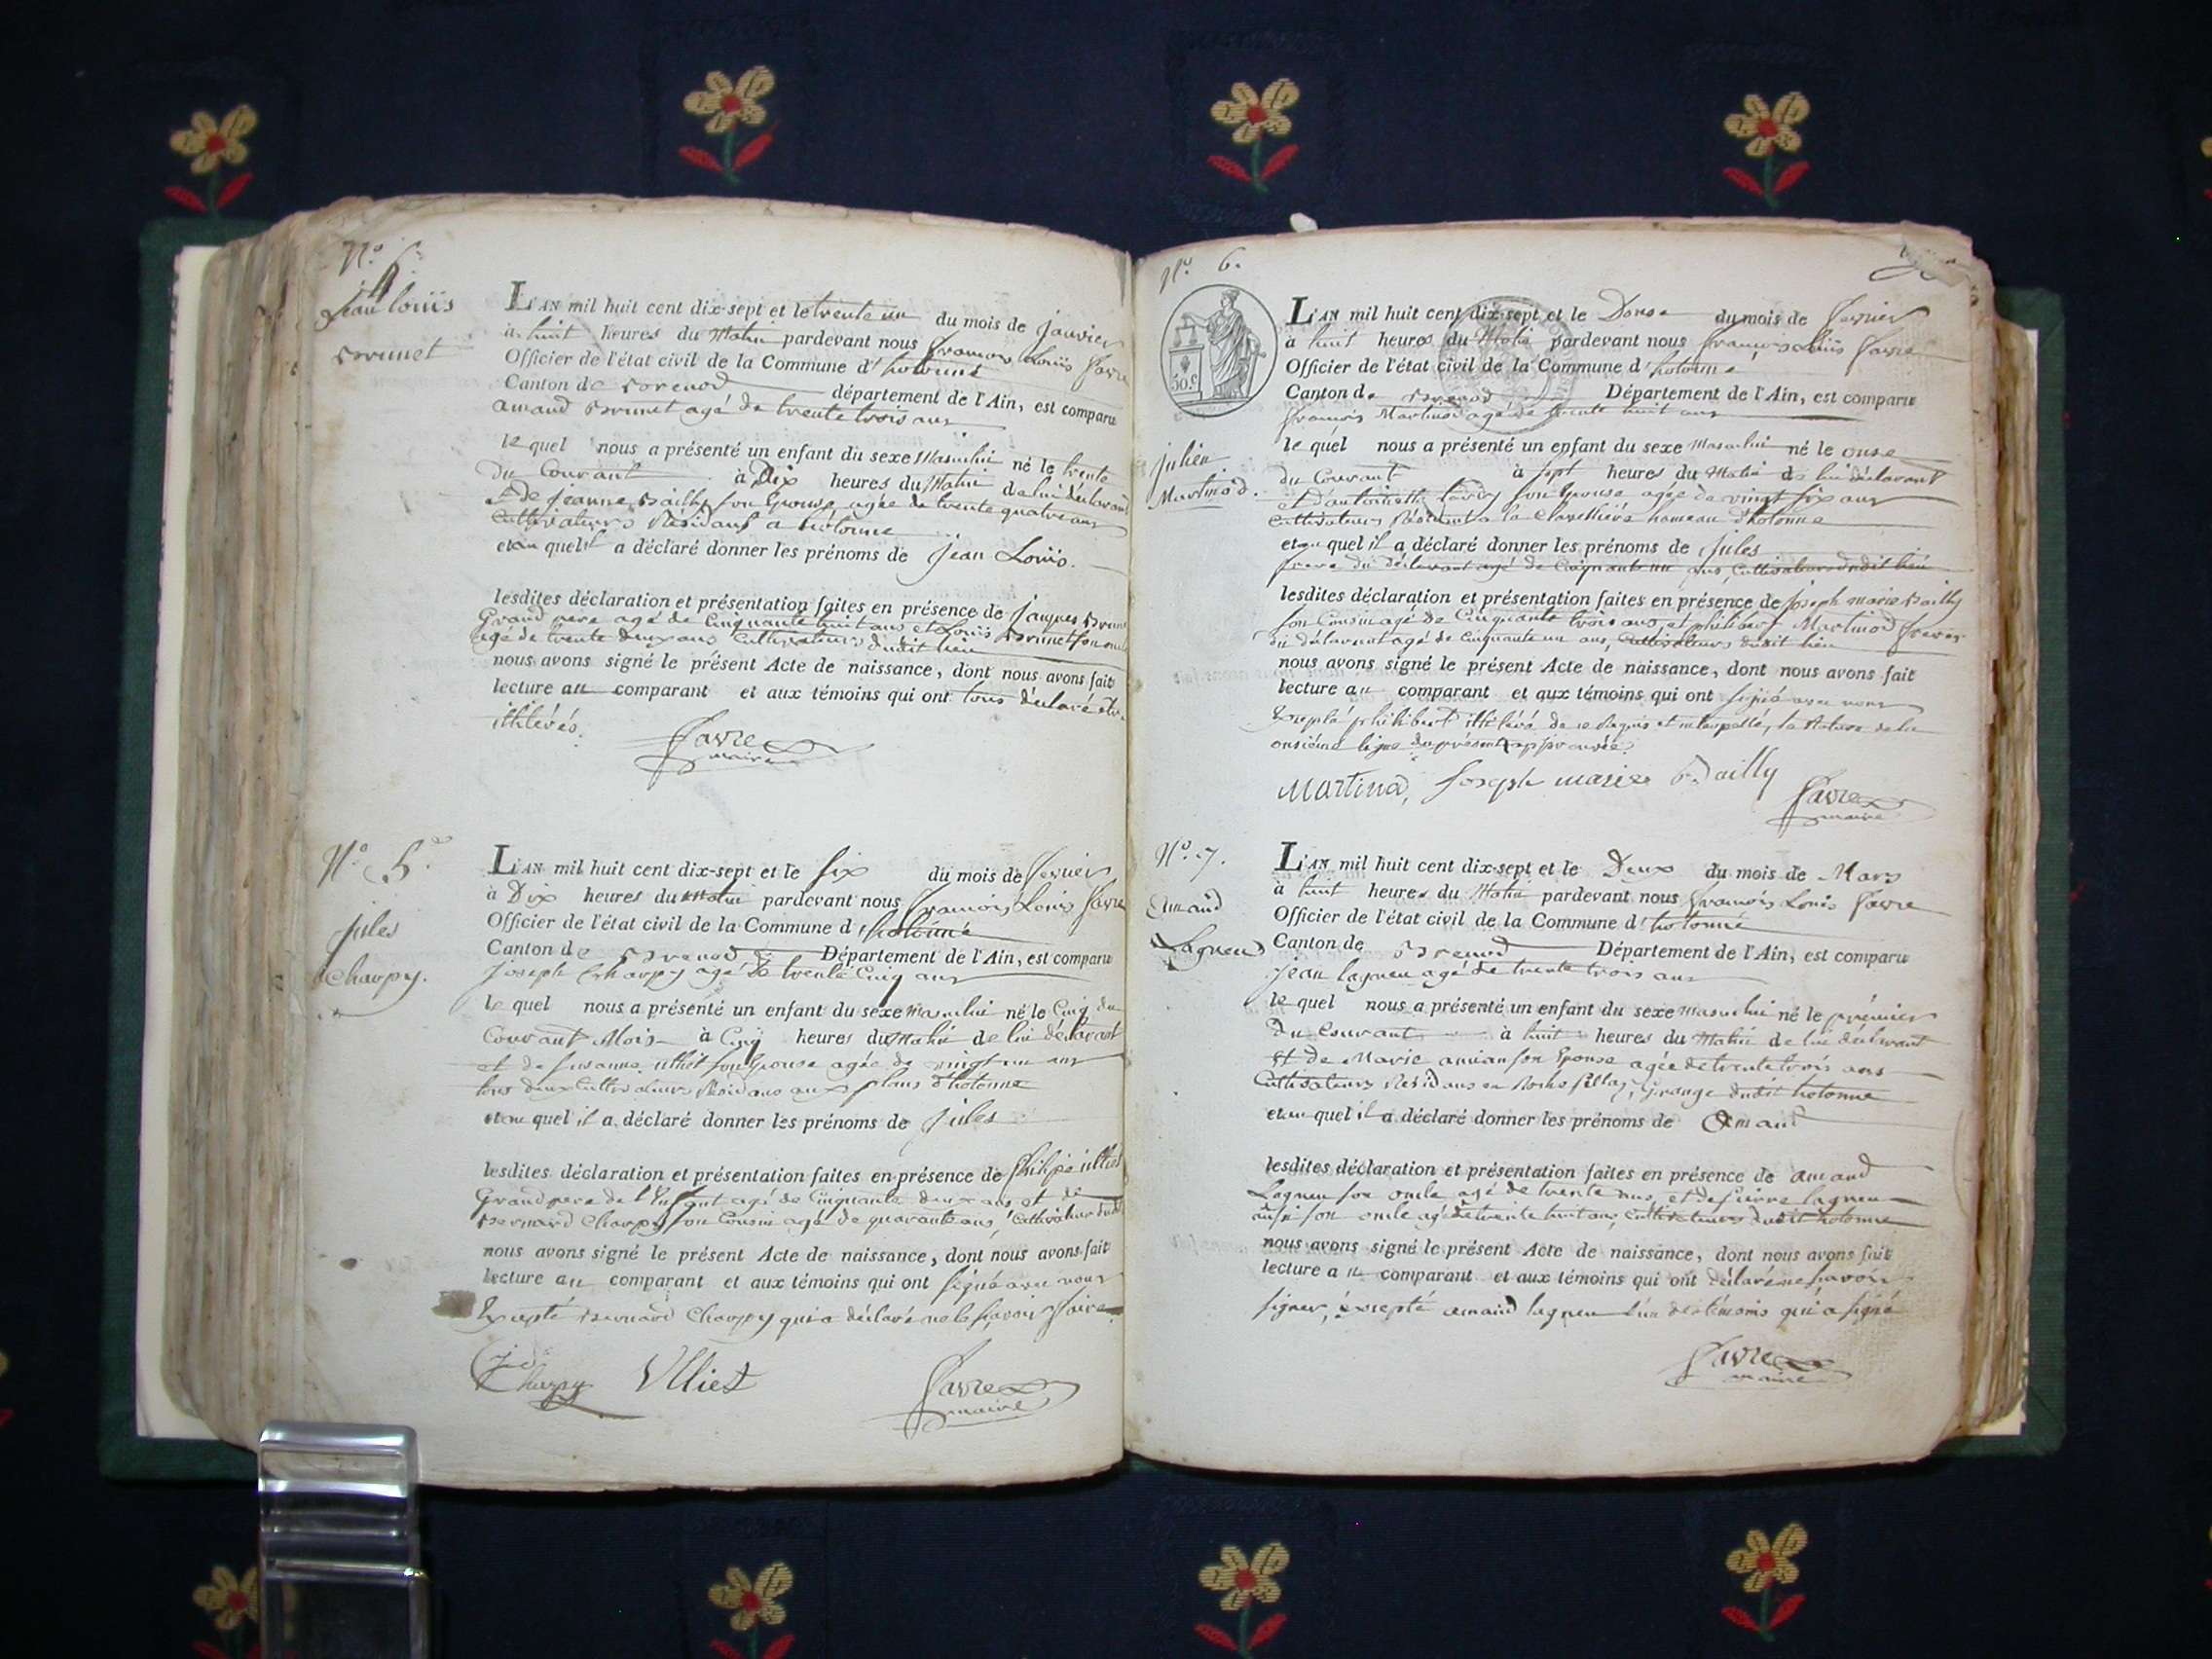 N.º
Jean louïs
Brunet
L'AN mil huit cent dix-sept et le trente un du mois de janvier
à huit heures du Matin pardevant nous françois Louïs Favre
Officier de l'état civil de la Commune d'hotonne
Canton de Brenod département de l'Ain, est comparu
amand Brunet agé de trente trois ans
le quel nous a présenté un enfant du sexe Masculin né le trente
du Courant à Dix heures du Matin de lui déclarant
et de jeanne Bailly son Epouse agée de trente quatre ans
Cultivateurs Résidans a hotonne
et au quel il a déclaré donner les prénoms de Jean Louïs.
lesdites déclaration et présentation faites en présence de jacques Brunet
Grand pere agé de Cinquante huit ans et Louïs Brunet son oncle
agé de trente deux ans Cultivateurs dudit lieu
nous avons signé le présent Acte de naissance, dont nous avons fait
lecture au comparant et aux témoins qui ont tous déclaré être
illitérés.
Favre
maire
N.º 5.
jules
Charpy.
L'AN mil huit cent dix-sept et le six du mois de fevrier
à Dix heures du Matin pardevant nous françois Louis Favre
Officier de l'état civil de la Commune d'hotonne
Canton de Brenod Département de l'Ain, est comparu
joseph Charpy agé de trente Cinq ans
le quel nous a présenté un enfant du sexe masculin né le Cinq du
Courant Mois à Cinq heures du Matin de lui déclarant
et de susanne son Epouse agée de vingt un ans
tous deux Cultivateurs Résidans aux plans d'hotonne
et au quel il a déclaré donner les prénoms de jules
lesdites déclaration et présentation faites en présence de
Grand pere de l'Enfant agé de Cinquante deux ans et de
Bernard Charpy son Cousin agé de quarante ans, Cultivateur dudit
nous avons signé le présent Acte de naissance, dont nous avons fait
lecture au comparant et aux témoins qui ont signé avec nous
Excepté Bernard Charpy qui a déclaré ne le sçavoir faire
Charpy Ulliet Favre
maire
N.º 6.
50.c
julien
Martinod.
L'AN mil huit cent dix-sept et le Douse du mois de fevrier
à huit heures du Matin pardevant nous françois Louïs Favre
Officier de l'état civil de la Commune d'hotonne
Canton de Brenod Département de l'Ain, est comparu
françois Martinod agé de trente huit ans
le quel nous a présenté un enfant du sexe Masculin né le onse
du Courant à sept heures du Matin de lui déclarant
et d'antoinette son Epouse agée de vingt six ans
Cultivateurs Résidents a la hameau d'hotonne
et au quel il a déclaré donner les prénoms de jules
frere du déclarant agé de Cinquante un ans, Cultivateurs dudit lieu
lesdites déclaration et présentation faites en présence de joseph marie Bailly
son Cousin agé de Cinquante trois ans et philibert Martinod freres
du déclarant agé de Cinquante un ans, Cultivateurs dudit lieu
nous avons signé le présent Acte de naissance, dont nous avons fait
lecture au comparant et aux témoins qui ont signé avec nous
Excepté philibert illitéré de ce Requis et interpellé, la Rature de la
onsième ligne du présent approuvée.
Martinod, Joseph marie Bailly
Favre
maire
N.º 7.
Amand
Lagneu
L'AN mil huit cent dix-sept et le Deux du mois de Mars
à huit heures du Matin pardevant nous françois Louis Favre
Officier de l'état civil de la Commune d'hotonne
Canton de Brenod Département de l'Ain, est comparu
jean lagneu agé de trente trois ans
le quel nous a présenté un enfant du sexe masculin né le prémier
du Courant à huit heures du Matin de lui déclarant
et de Marie son Epouse agée de trente trois ans
Cultivateurs Residans en Grange dudit hotonne
et au quel il a déclaré donner les prénoms de Amand
lesdites déclaration et présentation faites en présence de amand
Lagneu son oncle agé de trente ans, et de pierre lagneu
aussi son oncle agé de trente huit ans, Cultivateurs dudit hotonne
nous avons signé le présent Acte de naissance, dont nous avons fait
lecture au comparant et aux témoins qui ont déclaré ne savoir
signer, éxcepté amand lagneu l'un des témoins qui a signé
Favre
maire